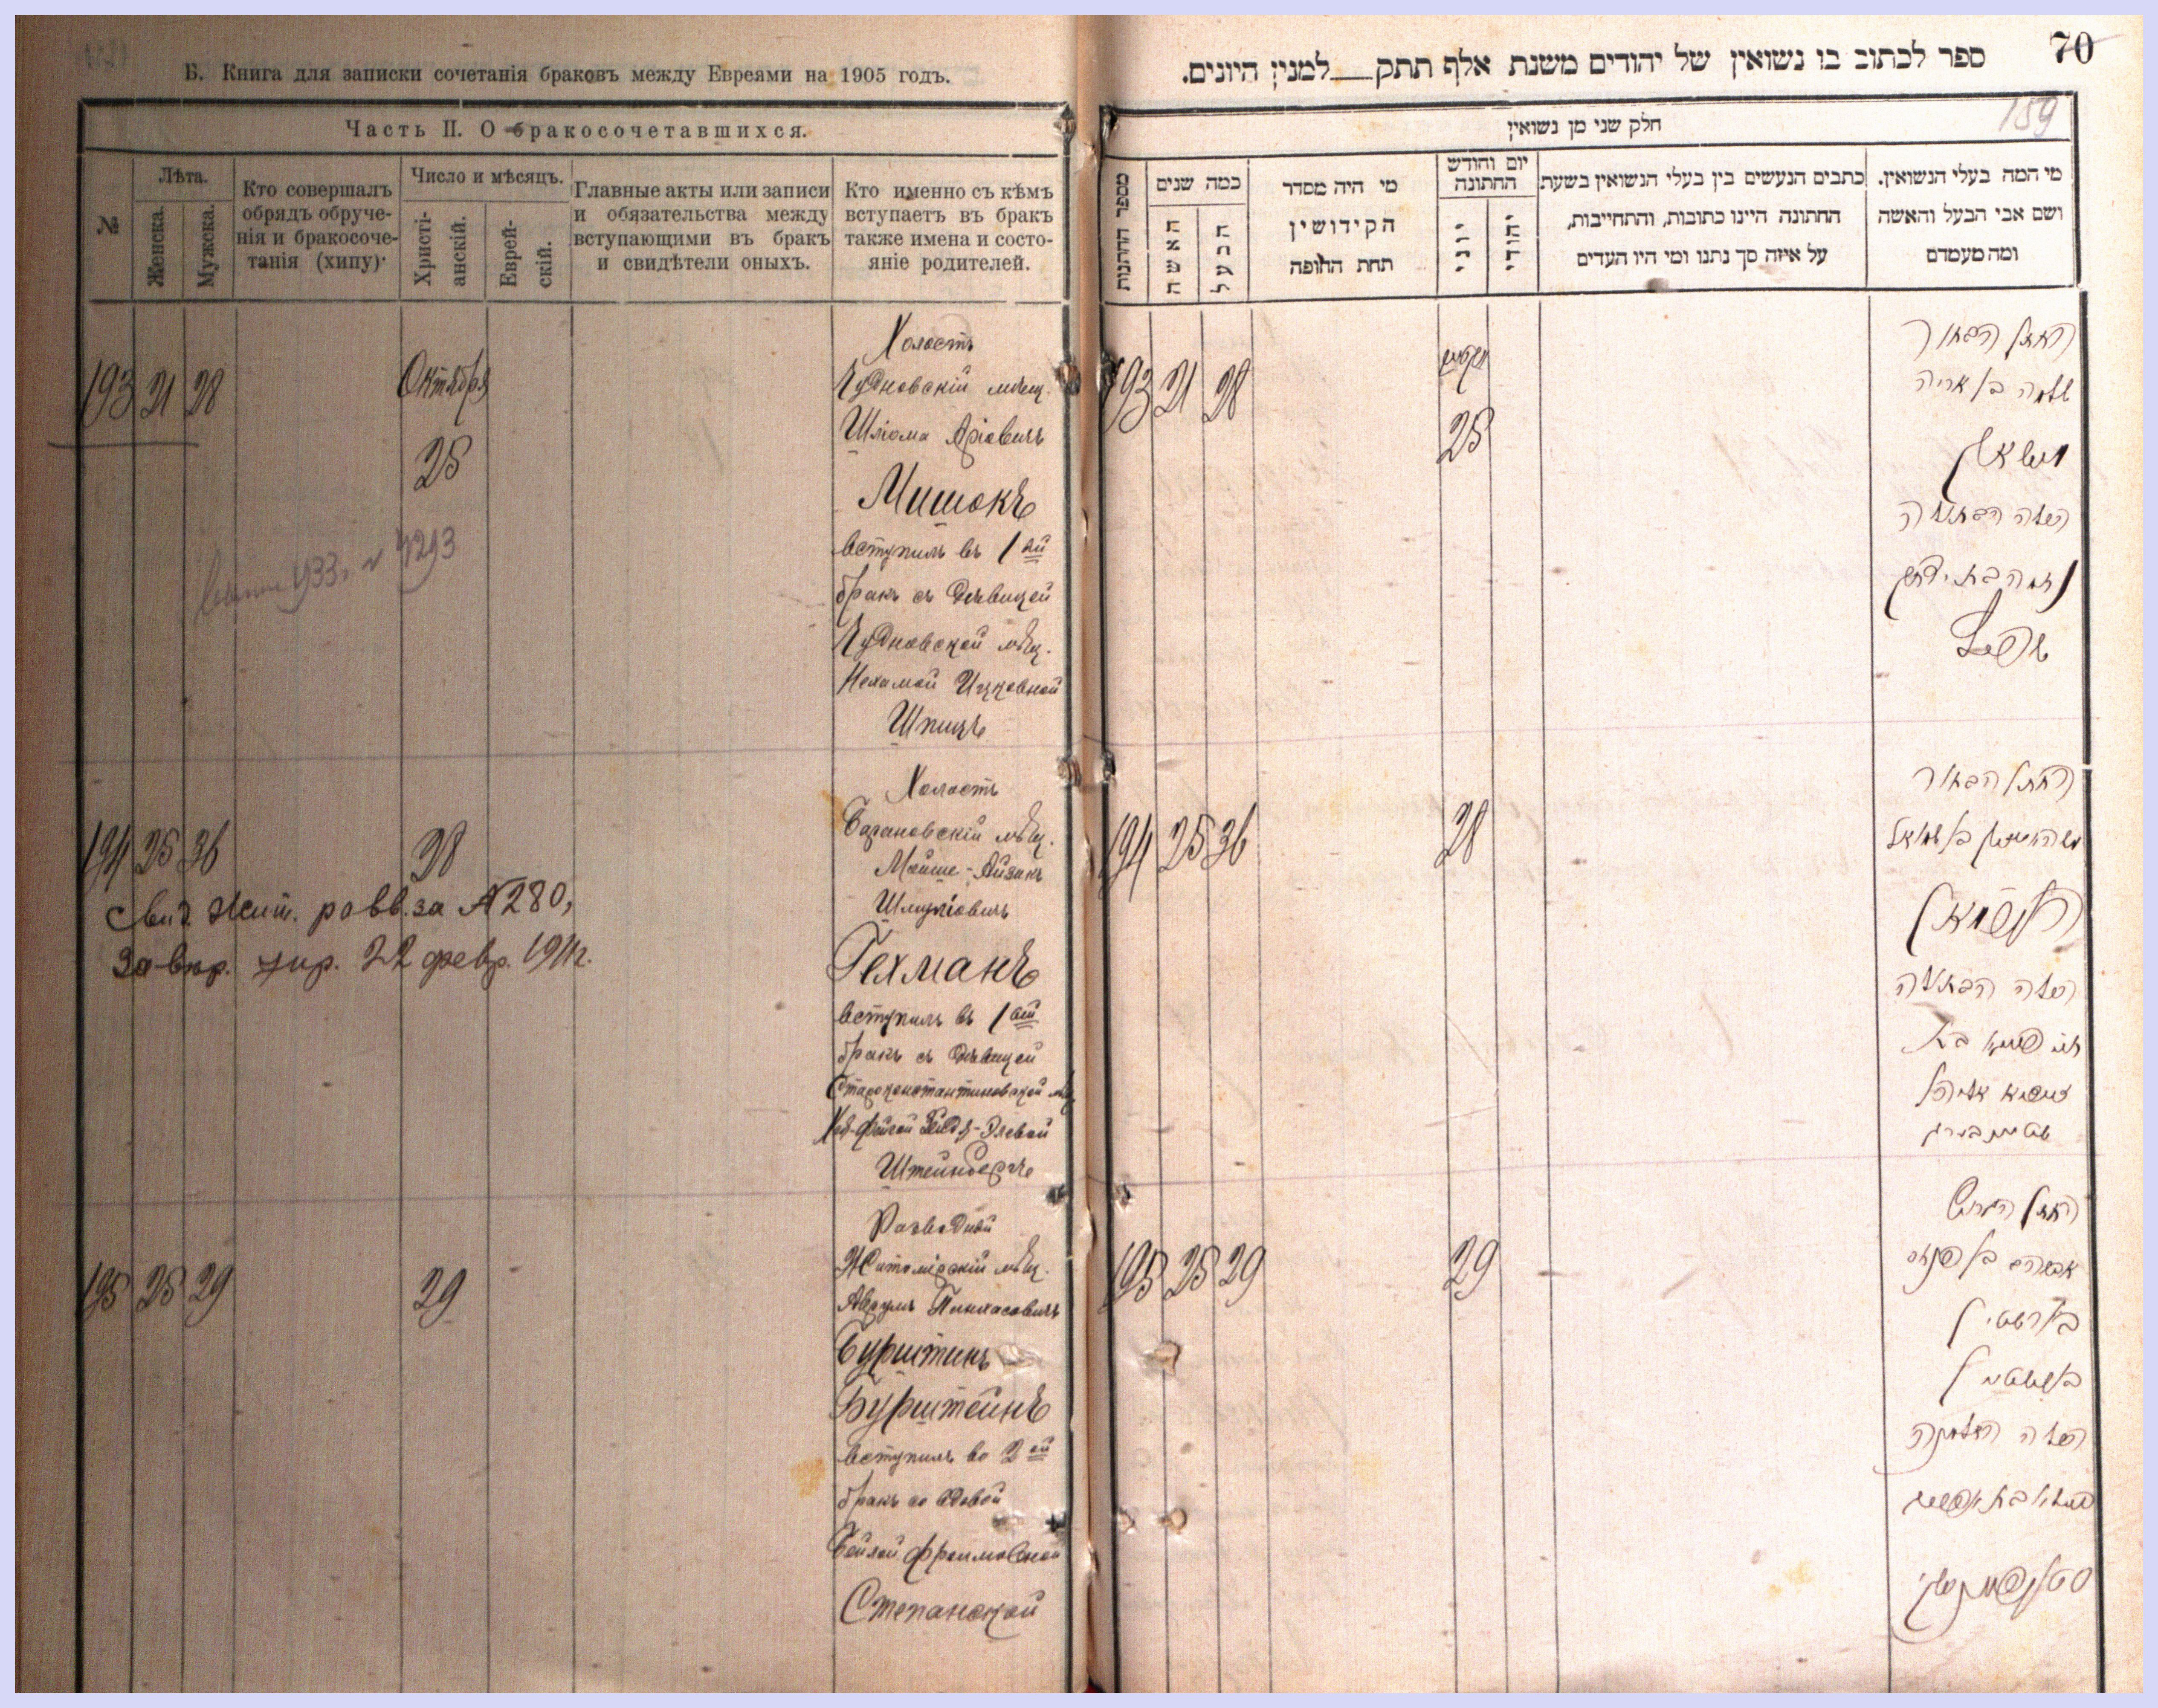 Б. Книга для записки сочетанія браковъ между Евреями на 1905 годъ.
Часть II. О бракосочетавшихся.
№
Лѣта.
Женска.
Мужска.
Кто совершалъ
обрядъ обруче-
нія и бракосоче-
танія (хипу)
Число и мѣсяцъ.
Христі-
анскій.
Еврей-
скій.
Главные акты или записи
и обязательства между
вступающими въ бракъ
и свидѣтели оныхъ.
Кто именно съ кѣмъ
вступаетъ въ бракъ
также имена и состо-
яніе родителей.
193 21 28
Октября
25
Холостъ
Чудновскій мѣщ.
Шліома Аріовичъ
Мишокъ
вступилъ въ 1ый
бракъ съ дѣвицей
Чудновской мѣщ.
Нехамой Ицковной
Шпицъ
933, № 4293
194 25 36
28
Свид. Жит. равв. за № 280,
22 февр. 1911г.
Холостъ
Барановскій мѣщ.
Мойше-Айзикъ
Шмуліовичъ
Гехманъ
вступилъ въ 1ый
бракъ съ дѣвицей
Староконстантиновской мѣщ.
Штейнбергъ
195 25 29
29
Разводный
Житомірскій мѣщ.
Аврумъ Пинхасовичъ
Бурштинъ
Бурштейнъ
вступилъ во 2ой
бракъ со вдовой
Бейлой Фроимовной
Степанской
70
ספר לכתוב בו נשואין של יהודים משנת אלף תתק למנין היונים.
159
חלק שני מן נשואין
מספר החתנות
כמה שנים
האשה
הבעל
מי היה מסדר
הקידושין
תחת החופה
יום וחודש
החתונה
יוני
יהודי
כתבים הנעשים בין בעלי הנשואין בשעת
החתונה היינו כתובות, והתחייבות,
על איזה סך נתנו ומי היו העדים
מי המה בעלי הנשואין.
ושם אבי הבעל והאשה
ומה מעמדם
193 21 28
25
החתן הבחור
שלמה בן אריה
הכלה הבתולה
נחמה בת יצחק
שפיץ
194 25 36
28
החתן הבחור
הכלה הבתולה
שטיינבערג
195 25 29
29
החתן הגרוש
אברהם בן פנחס
בורשטין
בורשטיין
הכלה האלמנה